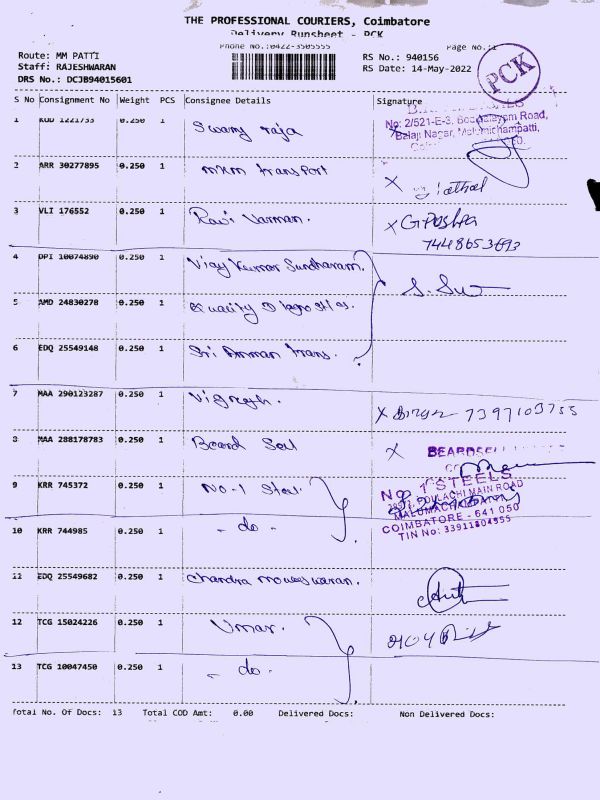 THE PROFESSIONAL COURIERS, Coimbatore
Delivery Runsheet - PCK
Phone No.:0422-3505555
Page No.:1
Route: MM PATTI
Staff: RAJESHWARAN
DRS No.: DCJB94015601
RS No.: 940156
RS Date: 14-May-2022
PCK
S No Consignment No Weight PCS Consignee Details Signature
1 KUD 1221733 0.250 1 Swamy raja
No: 2/521-E-3, Road,
Balaji Nagar, Malumichampatti,
2 ARR 30277895 0.250 1 mkm transport
3 VLI 176552 0.250 1 Ravi Varman. X G. Pushpa
7448653693
4 DPI 10074890 0.250 1 Vijay Kumar Sundharam.
5 AMD 24830278 0.250 1
6 EDQ 25549148 0.250 1 Sri Amman trans.
7 MAA 290123287 0.250 1 Vignesh. X 7397103755
8 MAA 288178783 0.250 1 Beard Sell X BEARDSELL
9 KRR 745372 0.250 1 No-1 Steel
No. 1 STEELS
POLLACHI MAIN ROAD
MALUMACHAMPATTY
COIMBATORE - 641 050
TIN No: 33911804555
10 KRR 744985 0.250 1 - do -
11 EDQ 25549682 0.250 1 Chandra mouleswaran.
12 TCG 15024226 0.250 1 Umar.
13 TCG 10047450 0.250 1 - do -
Total No. Of Docs: 13 Total COD Amt: 0.00 Delivered Docs: Non Delivered Docs: